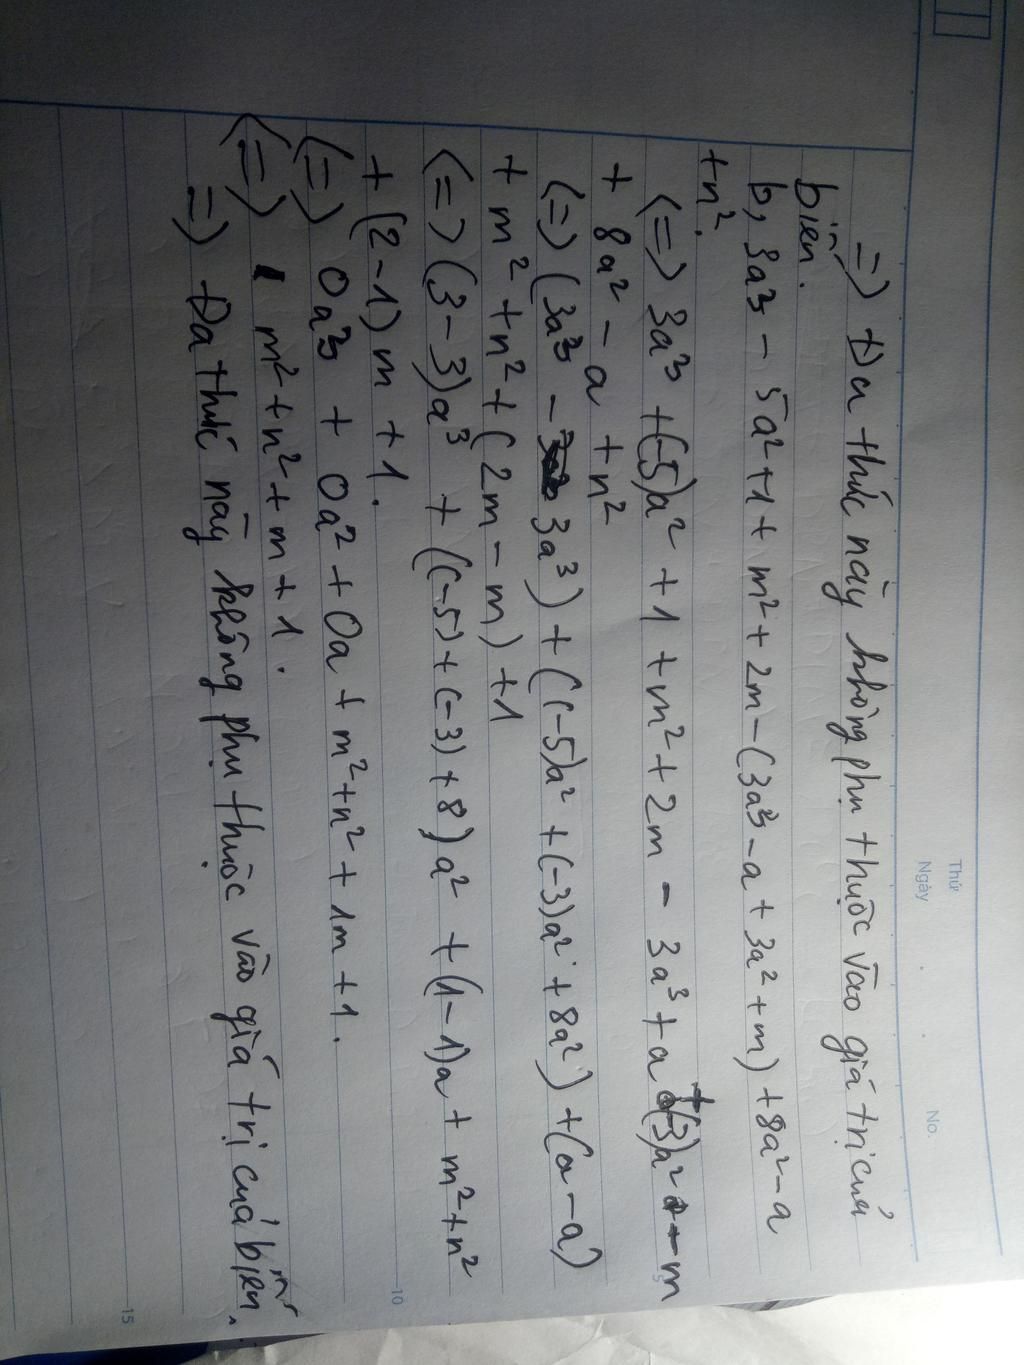 Thứ
Ngày
No.
=) Đa thức này không phụ thuộc vào giá trị của
biến.
b, 3a³ - 5a² + 1 + m² + 2m - (3a³ - a + 3a² + m) + 8a² - a
+ n².
(=) 3a³ + (-5)a² + 1 + m² + 2m - 3a³ + a + (-3)a² - m
+ 8a² - a + n²
(=) (3a³ - 3a³) + ((-5)a² + (-3)a² + 8a²) + (a - a)
+ m² + n² + (2m - m) + 1
(=) (3 - 3)a³ + ((-5) + (-3) + 8) a² + (1 - 1)a + m² + n²
+ (2 - 1) m + 1.
(=) 0a³ + 0a² + 0a + m² + n² + 1m + 1.
(=) m² + n² + m + 1.
=) Đa thức này không phụ thuộc vào giá trị của biến.
5
10
15